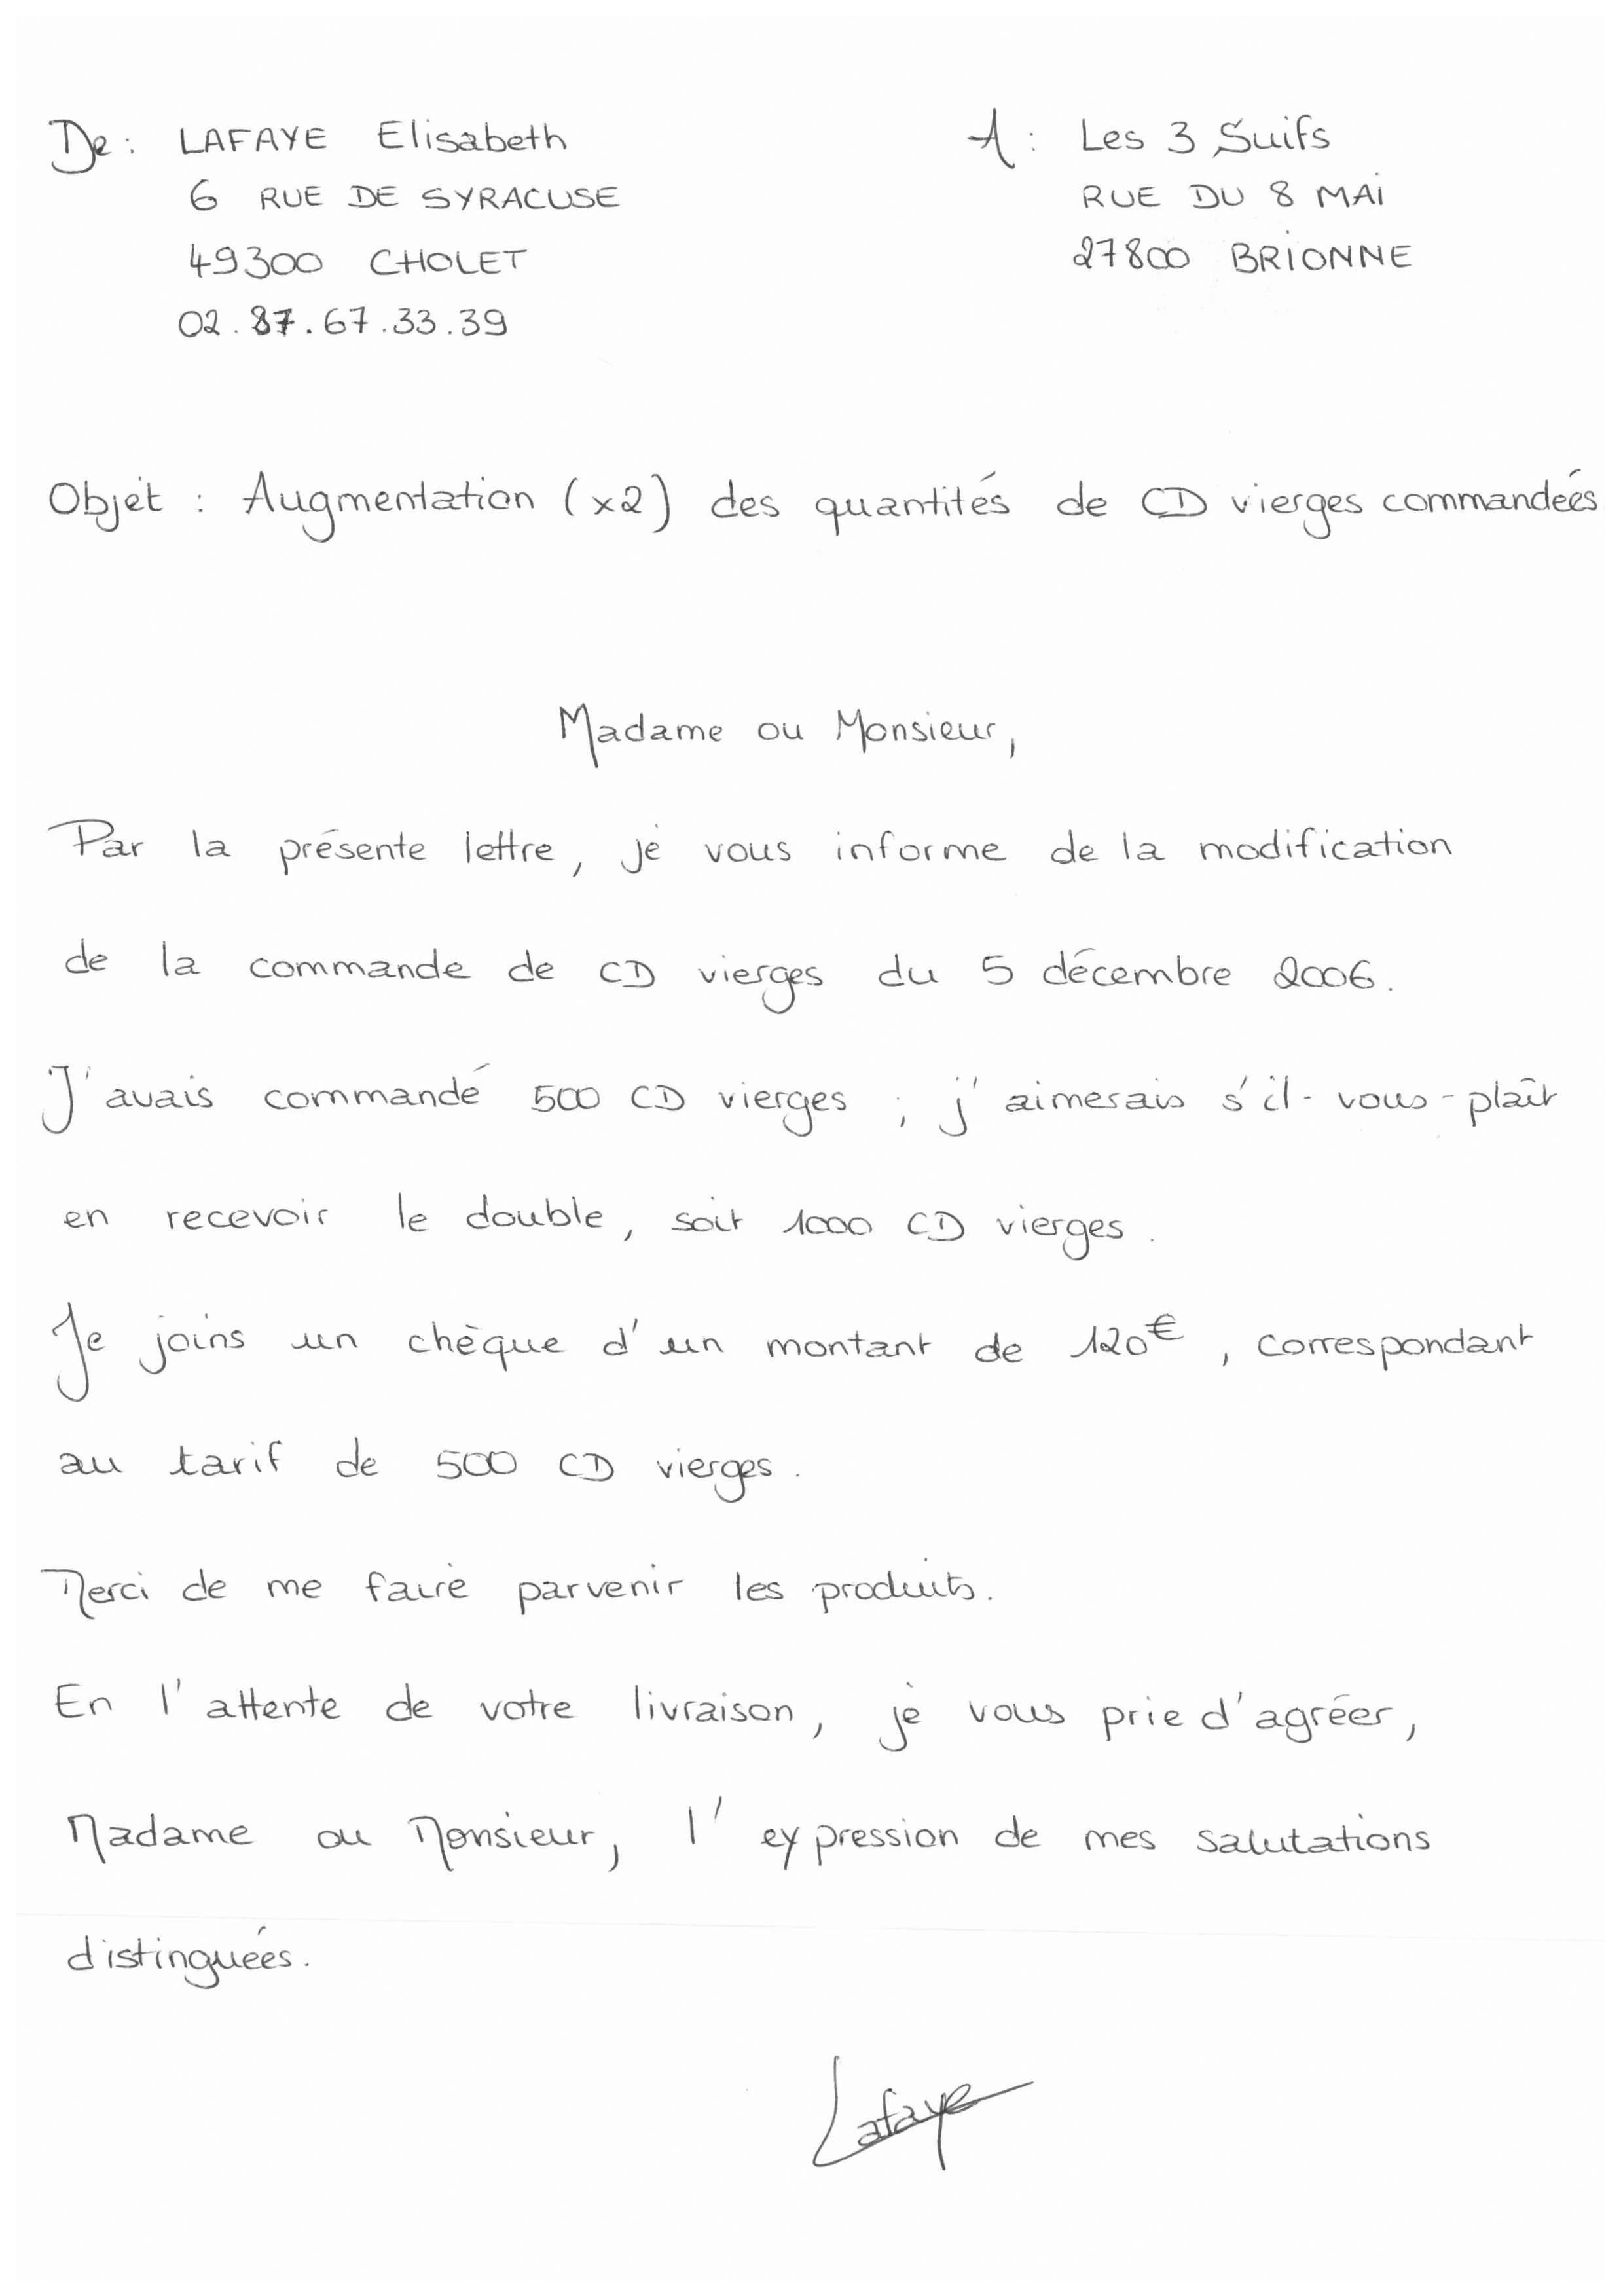 De : LAFAYE Elisabeth
6 RUE DE SYRACUSE
49300 CHOLET
02.87.67.33.39
A : Les 3 Suifs
RUE DU 8 MAI
27800 BRIONNE
Objet : Augmentation (x2) des quantités de CD vierges commandées
Madame ou Monsieur,
Par la présente lettre, je vous informe de la modification
de la commande de CD vierges du 5 décembre 2006.
J'avais commandé 500 CD vierges ; j'aimerais s'il-vous-plaît
en recevoir le double, soit 1000 CD vierges.
Je joins un chèque d'un montant de 120€, correspondant
au tarif de 500 CD vierges.
Merci de me faire parvenir les produits.
En l'attente de votre livraison, je vous prie d'agréer,
Madame ou Monsieur, l'expression de mes salutations
distinguées.
Lafaye